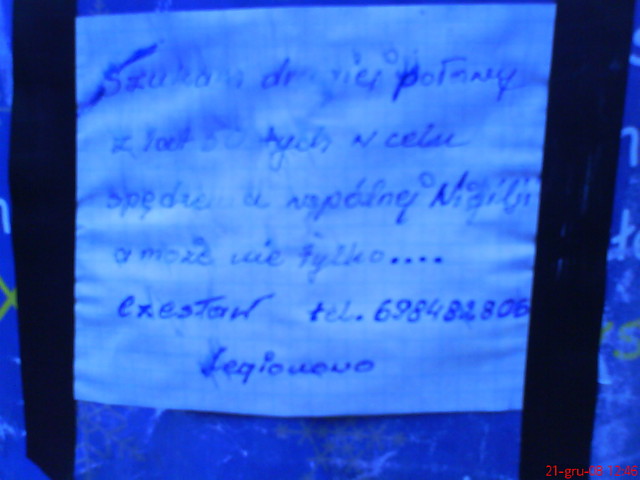 Szukam drugiej połowy
z lat 50 tych w celu
spędzenia wspólnej Wigilji
a może nie tylko....
Czesław tel. 698482806
Legionowo
21-gru-08